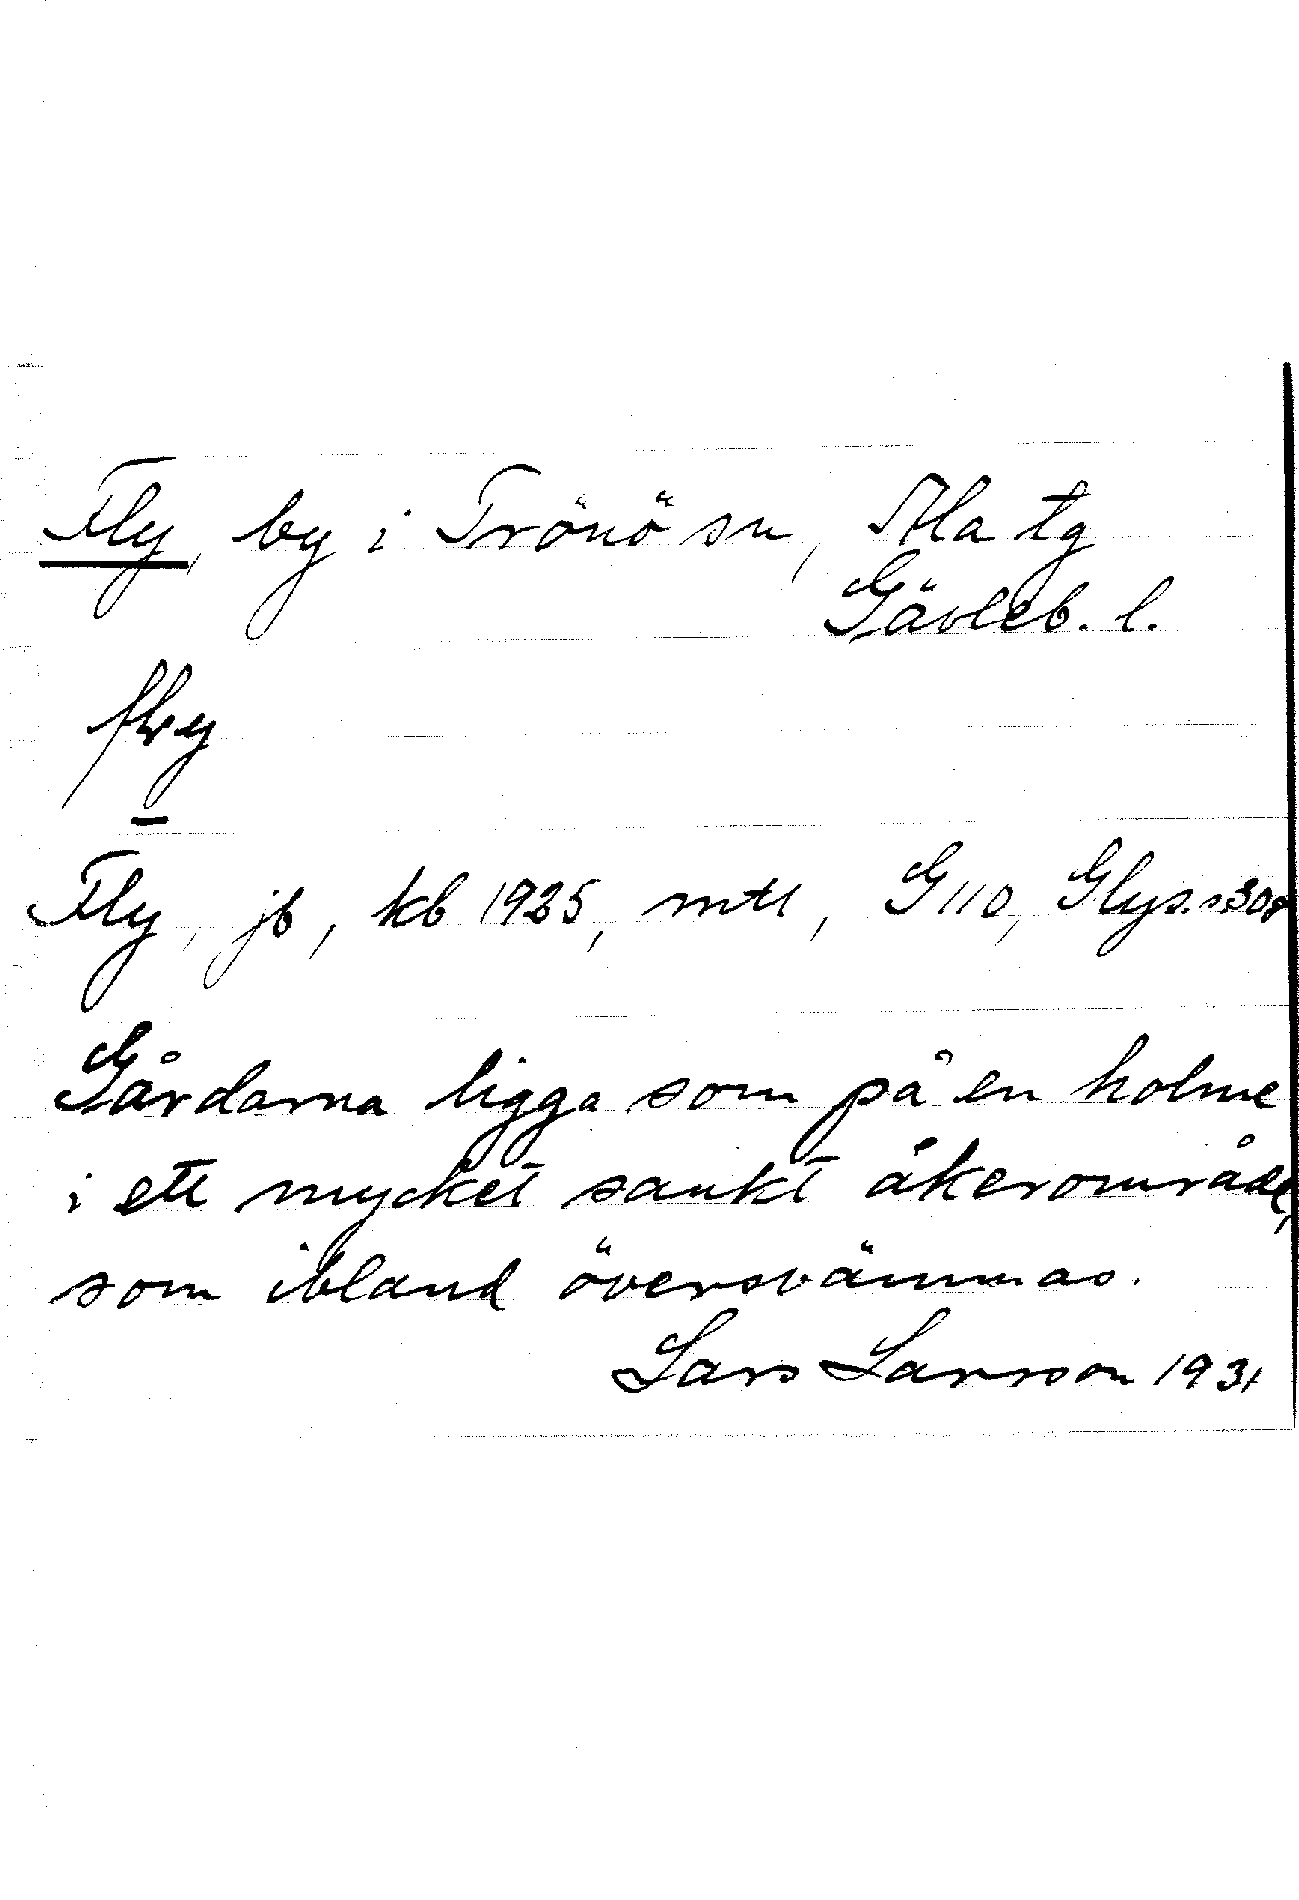 Fly, by i Trönö sn, Ala tg
Gävleb. l.
Fly, jb, kb 1925, mtl, G110, Glys. s 308
Gårdarna ligga som på en holme
i ett mycket sankt åkerområde,
som ibland översvämmas.
Lars Larsson 1931